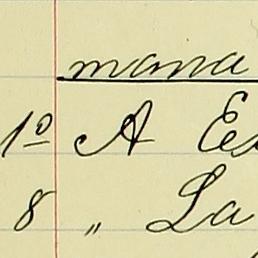 mana
1º A Es
8 " La